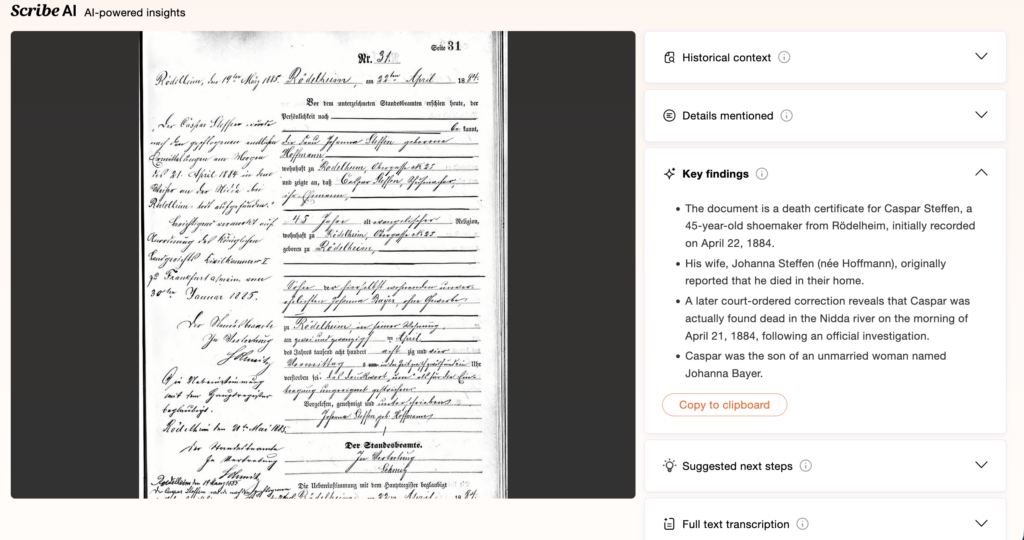 Scribe AI AI-powered insights
Seite 31
Nr. 31.
Rödelheim, den 19ten März 1885.
Rödelheim, am 22ten April 1884.
Vor dem unterzeichneten Standesbeamten erschien heute, der
Persönlichkeit nach
kannt,
die Frau Johanna Steffen geborene
Hoffmann,
wohnhaft zu Rödelheim, Obergasse № 25
und zeigte an, daß Caspar Steffen, Schuhmacher,
ihr Ehemann,
45 Jahre alt, evangelischer Religion,
wohnhaft zu Rödelheim, Obergasse № 25
geboren zu Rödelheim,
Sohn der hierselbst wohnenden unver-
ehelichten Johanna Bayer, ohne Gewerbe
zu Rödelheim, in seiner Wohnung,
am zwei und zwanzig ten April
des Jahres tausend acht hundert acht zig und vier
Vormittags Uhr
verstorben sei
Vorgelesen, genehmigt und unterschrieben
Johanna Steffen geb. Hoffmann
Der Standesbeamte.
In Vertretung
Schmitz
Die Uebereinstimmung mit dem Hauptregister beglaubigt
Rödelheim am 22ten April 1884.
Der Caspar Steffen wurde
nach den gepflogenen amtlichen
Ermittelungen am Morgen
des 21. April 1884 in dem
Rödelheim todt aufgefunden."
Anordnung des Königlichen
Landgerichts Civilkammer I
zu Frankfurt a/main vom
30ten Januar 1885.
Der Standesbeamte
In Vertretung
Schmitz
Uebereinstimmung
mit dem Hauptregister
beglaubigt.
Rödelheim den Mai 1885.
der Standesbeamte
In Vertretung
Schmitz
Historical context
Details mentioned
Key findings
• The document is a death certificate for Caspar Steffen, a
45-year-old shoemaker from Rödelheim, initially recorded
on April 22, 1884.
• His wife, Johanna Steffen (née Hoffmann), originally
reported that he died in their home.
• A later court-ordered correction reveals that Caspar was
actually found dead in the Nidda river on the morning of
April 21, 1884, following an official investigation.
• Caspar was the son of an unmarried woman named
Johanna Bayer.
Copy to clipboard
Suggested next steps
Full text transcription